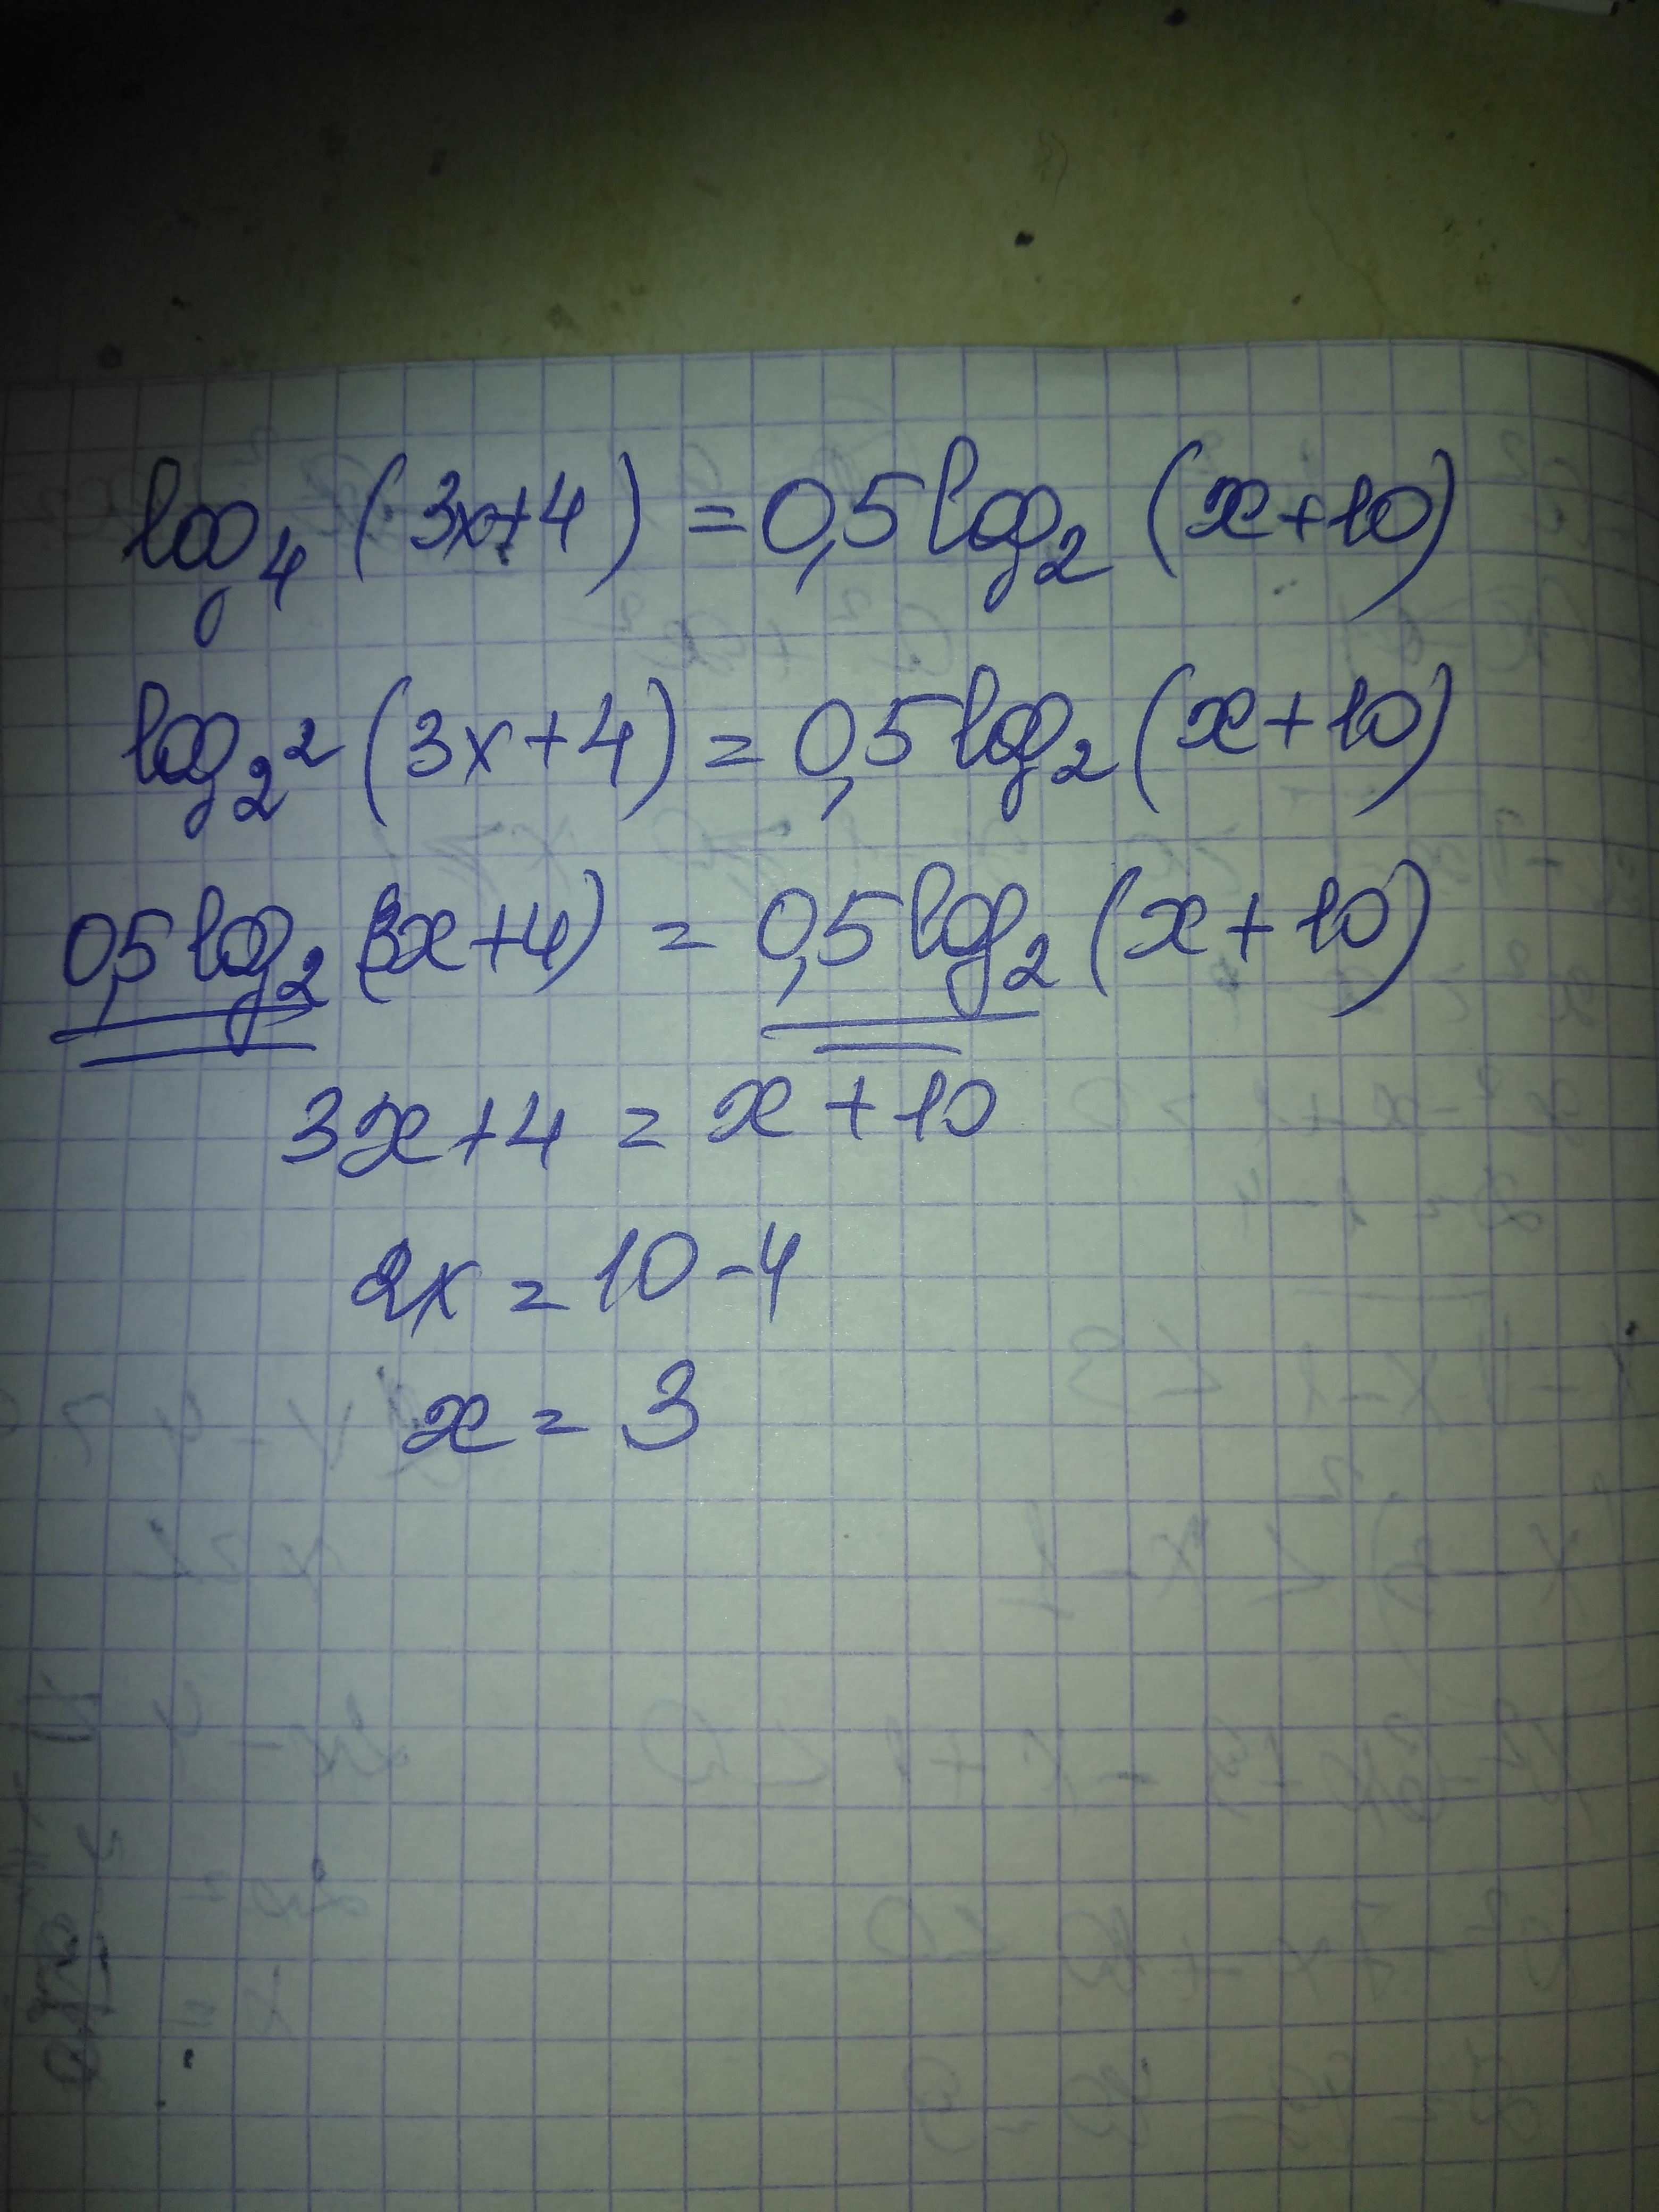 log₄ (3x+4) = 0,5 log₂ (x+10)
log₂² (3x+4) = 0,5 log₂ (x+10)
0,5 log₂ (3x+4) = 0,5 log₂ (x+10)
3x+4 = x+10
2x = 10-4
x = 3